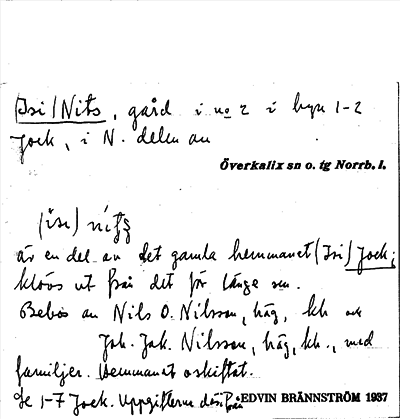 (Isi)Nits, gård i no 2 i byn 1-2
Jock, i N. delen av
Överkalix sn o. tg Norrb. l.
(isi) nits
är en del av det gamla hemmanet (Isi) Jock;
klövs ut från det för länge sen.
Bebos av Nils O. Nilsson, häg, kh och
Joh. Jak. Nilsson, häg, kh., med
familjer. Hemmanet oskiftat.
Se 1-7 Jock. Uppgifterna därifrån
EDVIN BRÄNNSTRÖM 1937